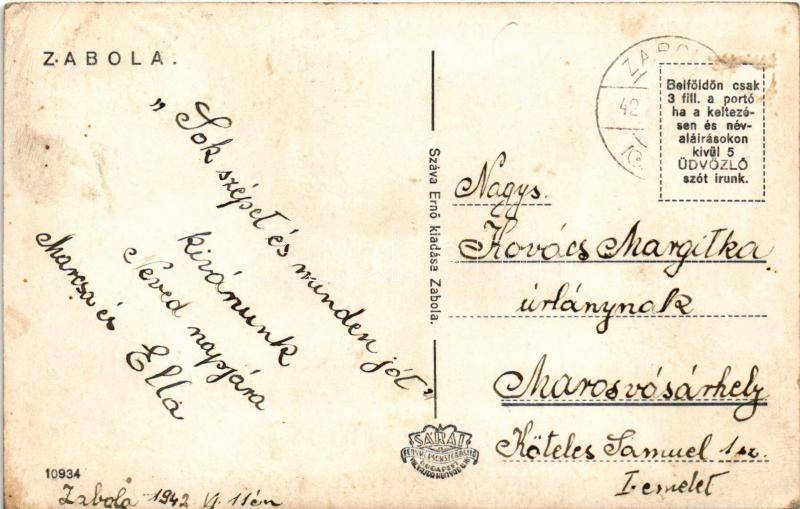 ZABOLA.
„Sok szépet és minden jót"
kivánunk
Neved napjára
Marcsa és Ella
10934
Zabola 1942 VI. 11én
Száva Ernő kiadása Zabola.
SÁRAI
BUDAPEST
ZABOLA
42
Belföldön csak
3 fill. a portó
ha a keltezé-
sen és név-
aláirásokon
kivül 5
ÜDVÖZLŐ
szót irunk.
Nagys.
Kovács Margitka
úrlánynak
Marosvásárhely
Köteles Sámuel 1 sz.
I. emelet